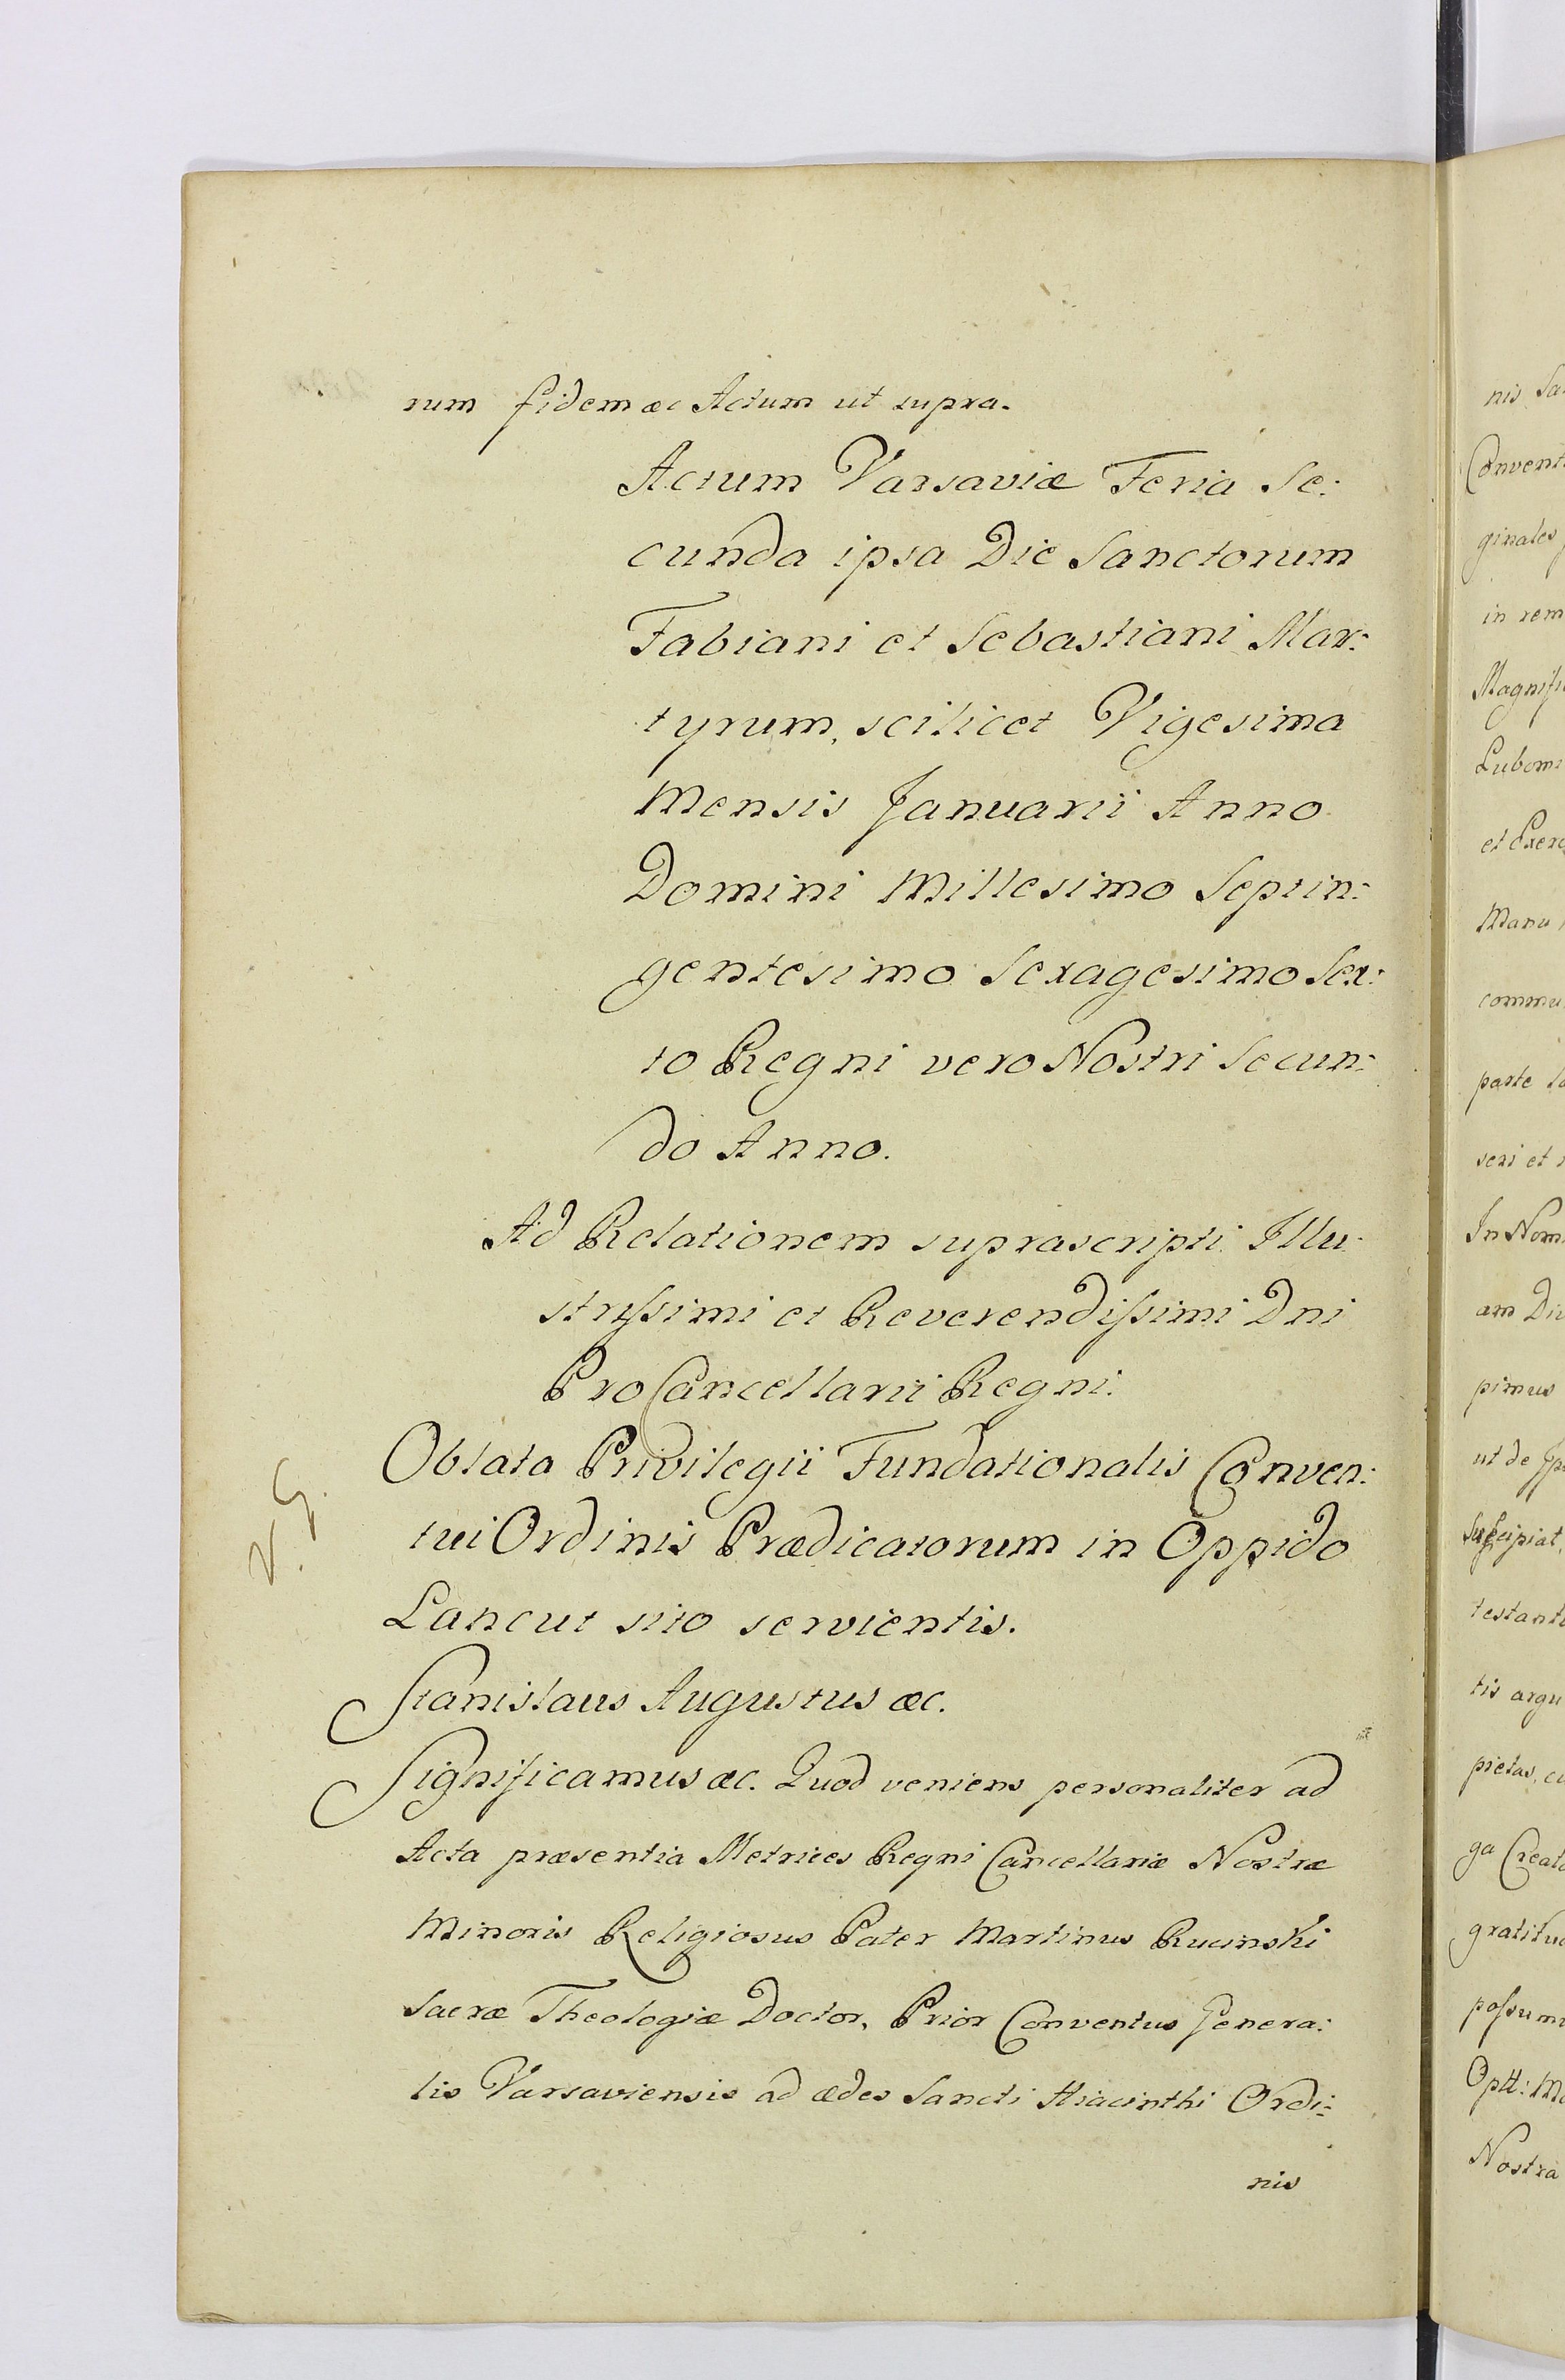 rum fidem æc Actum ut supra.
Actum Varsaviæ Feria Se:
cunda ipsa Die Sanctorum
Fabiani et Sebastiani Mar:
tyrum, scilicet Vigesima
Mensis Januarii Anno
Domini Millesimo Septin:
gentesimo Sexagesimo Sex:
to Regni vero Nostri Secun:
do Anno.
Ad Relationem suprascripti Illu:
strissimi et Reverendissimi Dni
ProCancellarii Regni.
Oblata Privilegii Fundationalis Conven:
tui Ordinis Prædicatorum in Oppido
Lancut sito servientis.
Stanislaus Augustus æc.
Significamus æc. Quod veniens personaliter ad
Acta præsentia Metrices Regni Cancellariæ Nostræ
Minoris Religiosus Pater Martinus Rucinski
Sacræ Theologiæ Doctor, Prior Conventus Genera:
lis Varsaviensis ad ædes Sancti Hiacinthi Ordi:
nis
nis Sa
Convent
ginales
in rem
Magnifi
Lubomi
et Exerc
Manu
commu
parte
seri et
In Nom
am Div
pimus
ut de
Suscipiat,
testant
tis argu
pietas, cu
ga Creato
gratitud
possum
Optt: M
Nostra